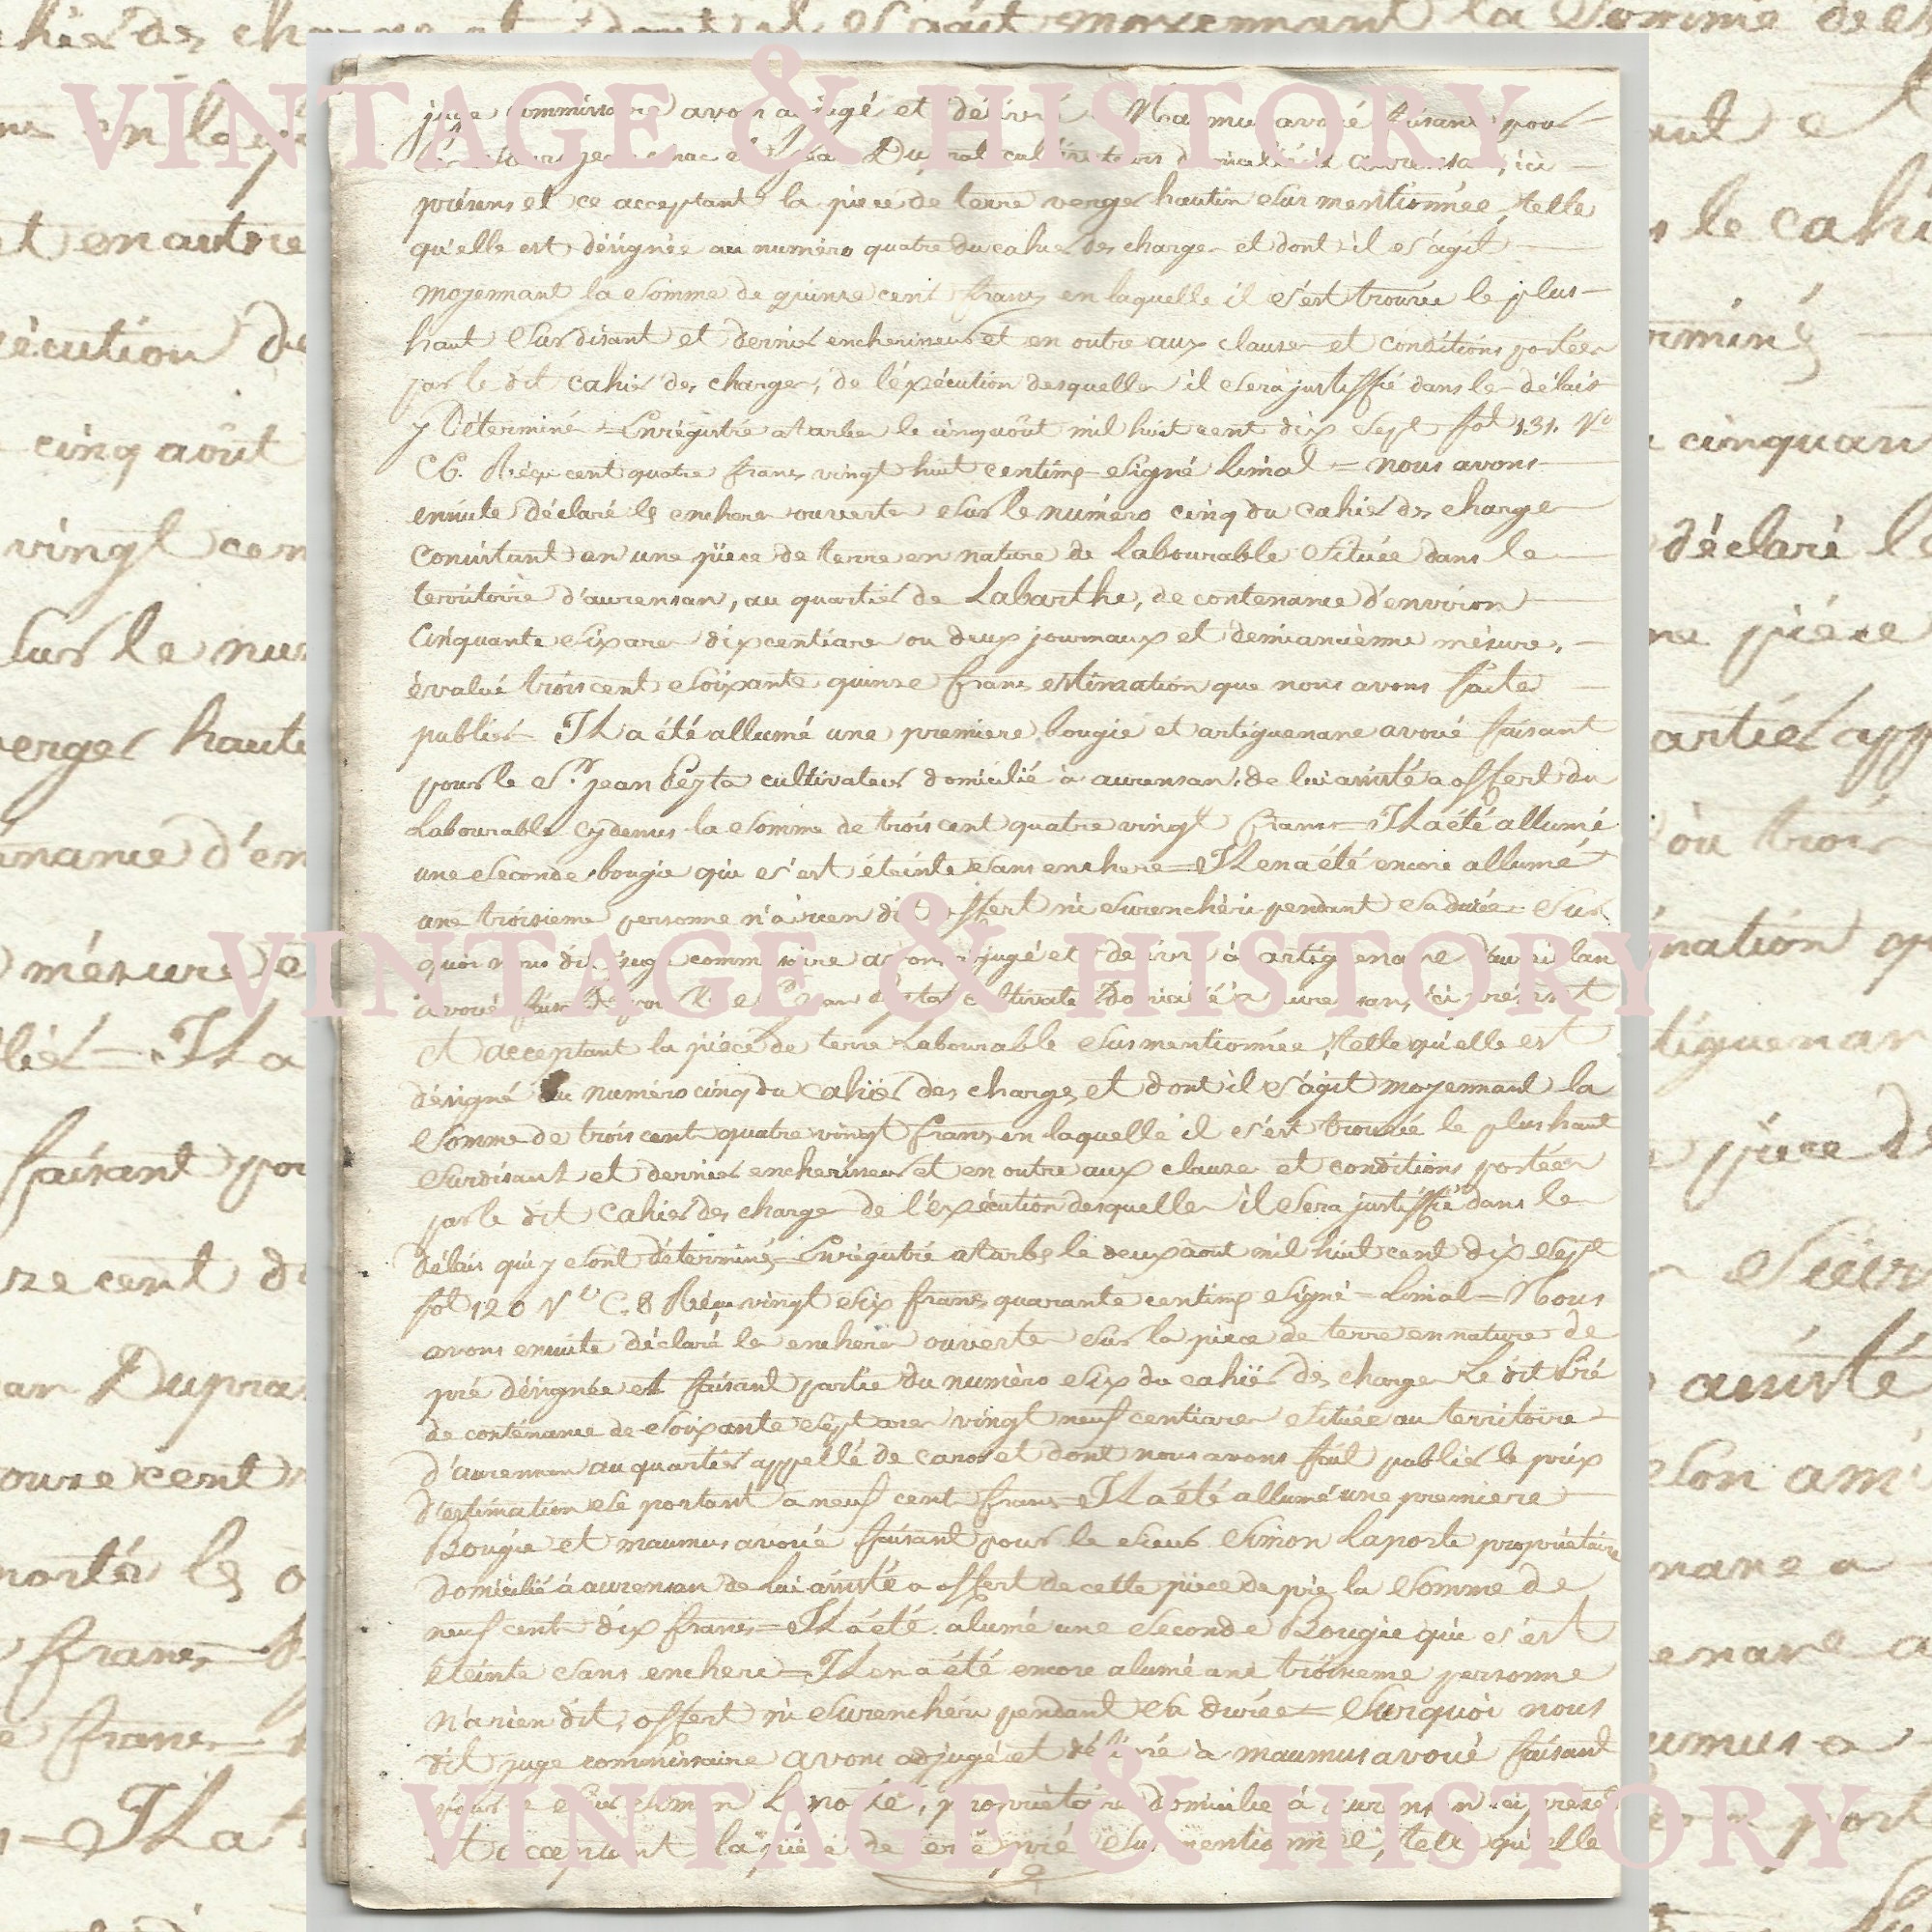 VINTAGE & HISTORY
juge commissaire avons adjugé et délivré Maumus avoué faisant pour
Duprat cultivateurs domicilié à aurensan, ici
présens et ce acceptant la piece de terre verger hautin sus mentionnée, telle
qu'elle est désignée au numéro quatre du cahier des charges et dont il s'agit
moyennant la somme de quinze cent francs en laquelle il s'est trouvée le plus
haut surdisant et dernier encherisseur et en outre aux clauses et conditions portées
par le dit cahier des charges, de l'éxécution desquelles il sera justiffié dans les délais
y Déterminé = Enrégistré a tarbes le cinq août mil huit cent dix sept fol 131. Vo
C6. Réçu cent quatre francs vingt huit centimes signé Linal = nous avons
ensuite déclaré les encheres ouvertes sur le numéro cinq du cahier des charges
Consistant en une pièce de terre en nature de Labourable située dans le
territoire d'aurensan, au quartier de Labarthe, de contenance d'environ
Cinquante six ares dix centiares ou deux journaux et demi ancienne mésure,
évalué trois cent soixante quinze francs estimation que nous avons faite
publier Il a été allumé une premiere bougie et artiguenave avoué faisant
pour le Sr jean Peyta cultivateur domicilié à aurensan, de lui assisté a offert du
Labourable cy dessus la somme de trois cent quatre vingt francs = Il a été allumé
une seconde bougie qui s'est éteinte sans enchere = Il en a été encore allumé
une troisieme personne n'a rien dit offert ni surenchéri pendant sa durée = Sur
quoi nous dit juge commissaire avons adjugé et délivré à artiguenave
VINTAGE & HISTORY
avoué cultivateur Domicilié à aurensan, ici présent
et acceptant la pièce de terre Labourable susmentionnée, telle qu'elle est
désigné au numéro cinq du cahier des charges et dont il s'agit moyennant la
somme de trois cent quatre vingt francs en laquelle il s'est trouvée le plus haut
surdisant et dernier encherisseur et en outre aux clauses et conditions portées
par le dit cahier des charges de l'éxécution desquelles il sera justiffié dans les
délais qui y sont déterminés = Enrégistré a tarbes le deux août mil huit cent dix sept
fol 120 Vo C.8 Réçu vingt six francs quarante centimes signé = Linal = Nous
avons ensuite déclaré les encheres ouvertes sur la piece de terre en nature de
pré désignée et faisant partie du numéro six du cahier des charges Le dit Pré
de conténance de soixante sept ares vingt neuf centiares située au territoire
d'aurensan au quartier appellé de et dont nous avons fait publier le prix
d'estimation se portant a neuf cent francs = Il a été allumé une premiere
Bougie et maumus avoué faisant pour le sieur Simon Laporte propriétaire
domicilié à aurensan de lui assisté a offert de cette pièce de pré la somme de
neuf cent dix francs = Il a été alumé une seconde Bougie qui s'est
éteinte sans enchere = Il en a été encore alumé une troisieme personne
N'a rien dit, offert ni surenchéri pendant sa durée = Surquoi nous
dit juge commissaire avons adjugé et délivré à maumus avoué faisant
pour le sieur Simon Laporte, propriétaire domicilié à aurensan ici présent
et acceptant la pièce de terre pré susmentionnée, telle qu'elle
VINTAGE & HISTORY